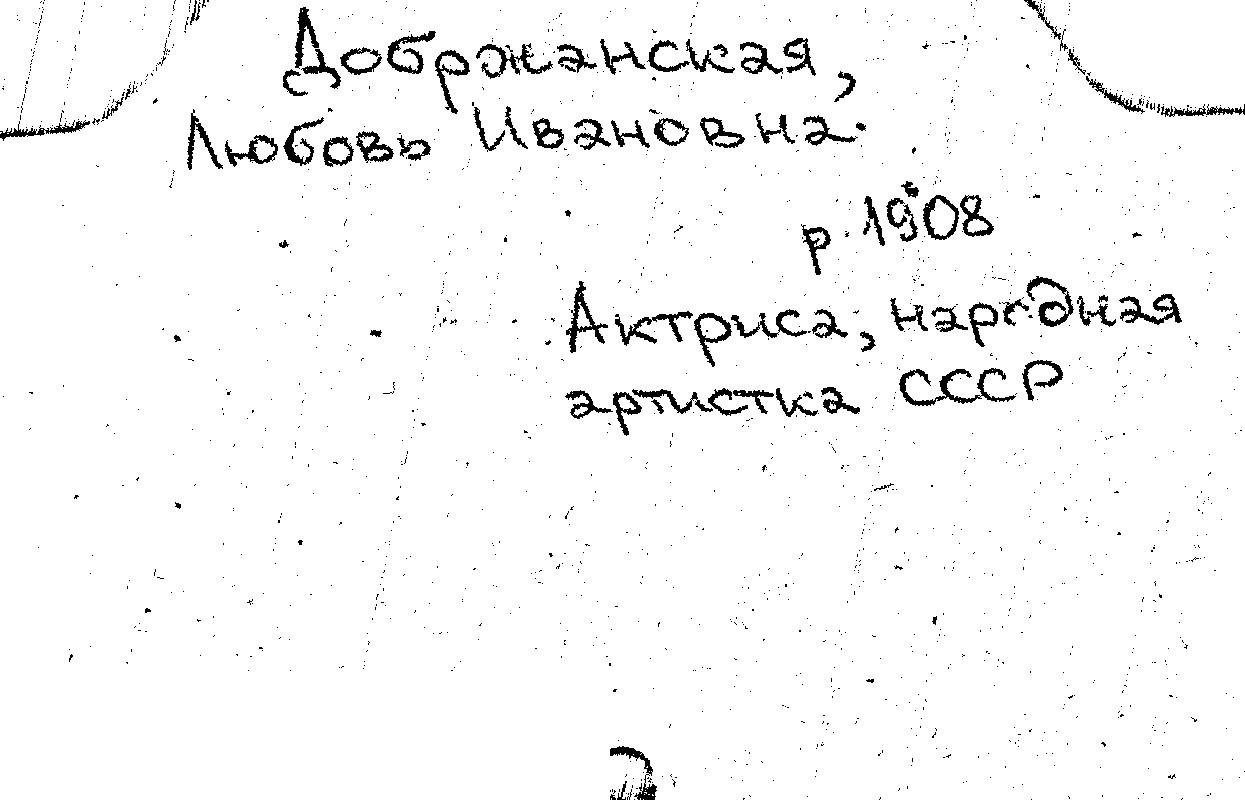 Добржанская,
Любовь Ивановна.
р. 1908
Актриса, народная
артистка СССР